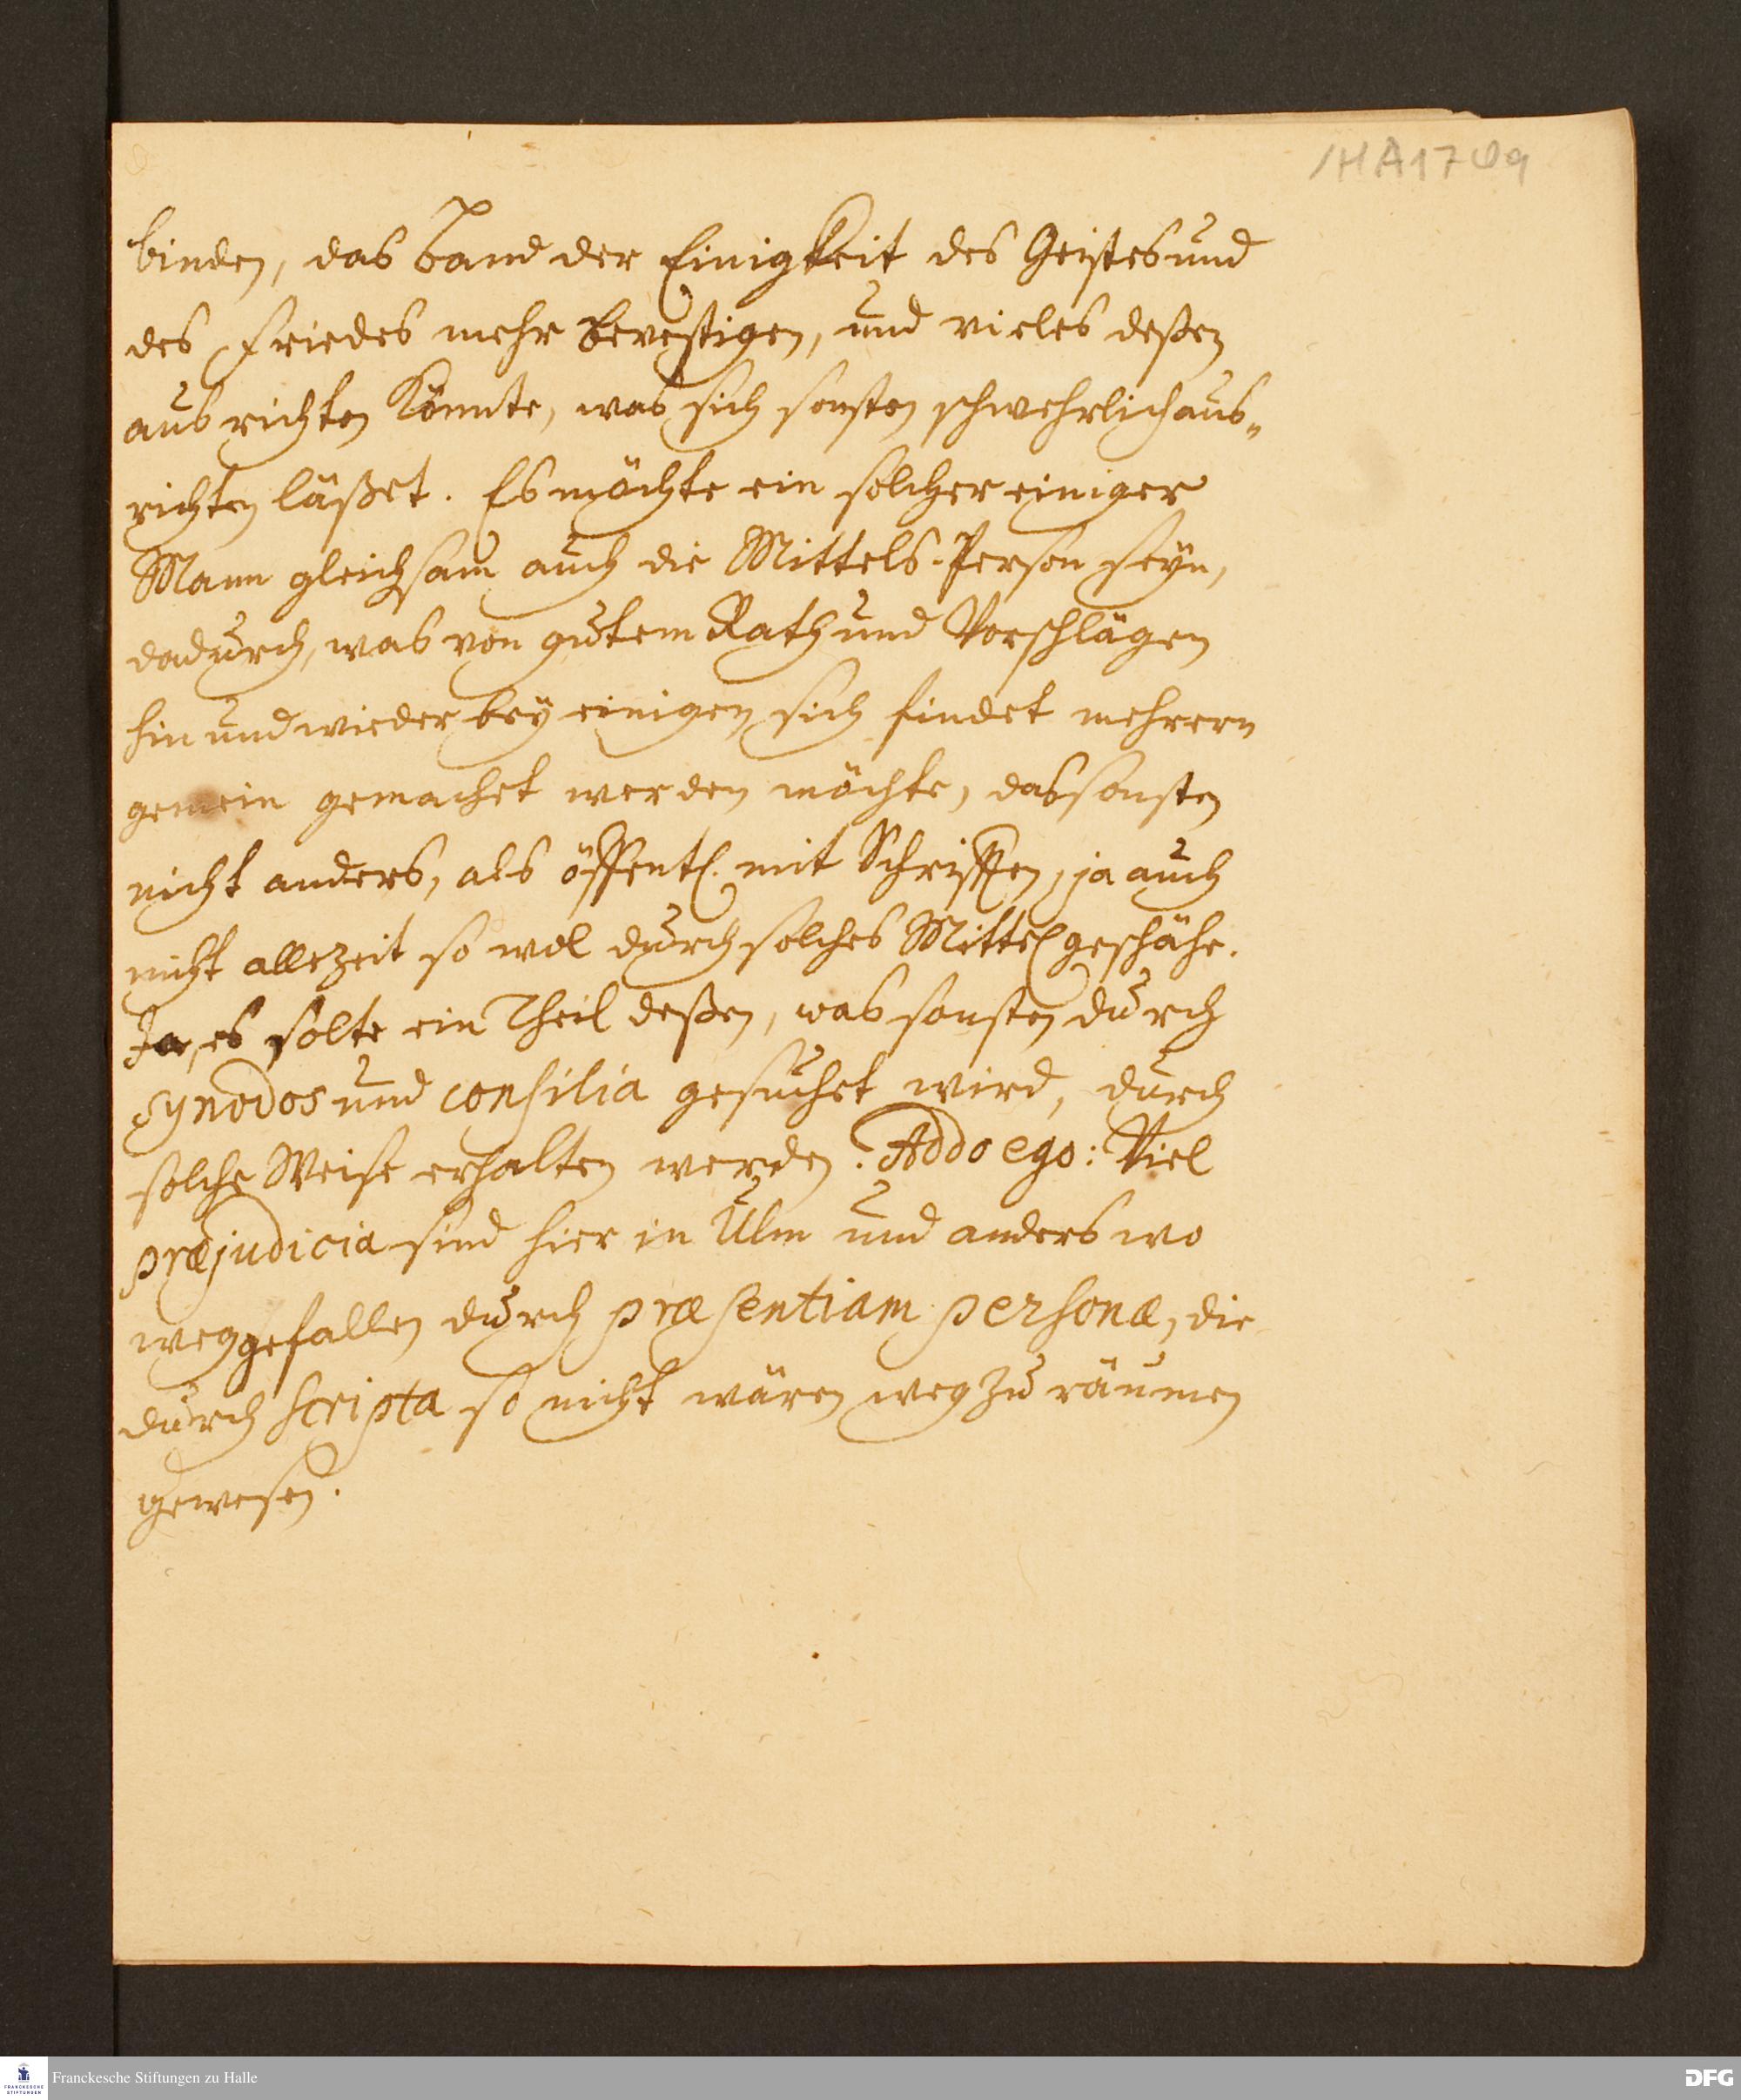 /HA1709
binden, das Band der Einigkeit des Geistes und
des Friedes mehr bevestigen, und vieles deßen
ausrichten könnte, was sich sonsten schwehrlich aus„
richten läßet. Es möchte ein solcher einiger
Mann gleichsam auch die Mittels-Person seyn,
dadurch, was von gutem Rath und Vorschlägen
hin und wieder bey einigen sich findet mehrern
gemein gemachet werden möchte, das sonsten
nicht anders, als öffentl. mit Schrifften, ja auch
nicht allezeit so wol durch solches Mittel geschähe.
Ja, es solte ein Theil deßen, was sonsten durch
synodos und consilia gesuchet wird, durch
solche Weise erhalten werden. Addo ego: Viel
præjudicia sind hier in Ulm und anderswo
weggefallen durch præsentiam personæ, die
durch scripta so nicht wären wegzuräumen
gewesen.
Franckesche Stiftungen zu Halle
FRANCKESCHE
STIFTUNGEN
DFG